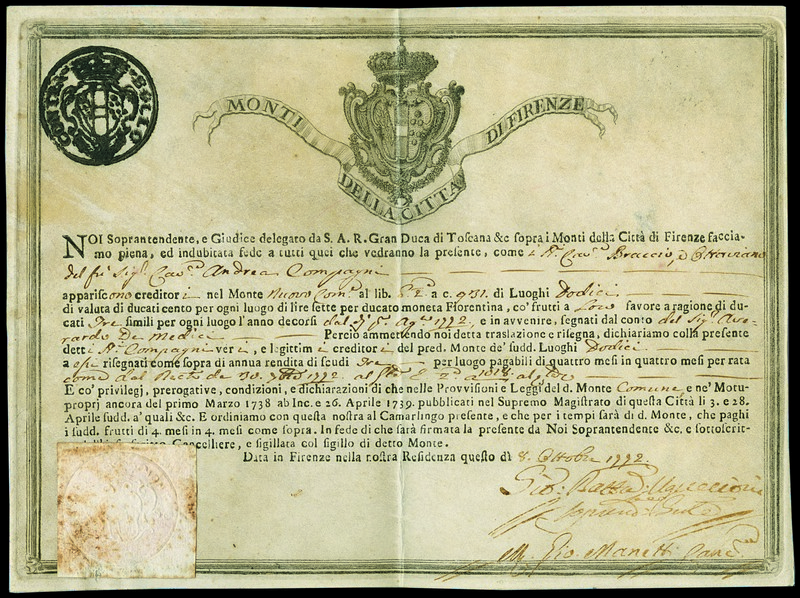 CONTR. BOLLO
MONTI
DELLA CITTA
DI FIRENZE
NOI Soprantendente, e Giudice delegato da S. A. R. Gran Duca di Toscana &c sopra i Monti della Città di Firenze faccia-
mo piena, ed indubitata fede a tutti quei che vedranno la presente, come i Braccio, e
del Sig. Cav. Andrea Compagni
appariscono creditori nel Monte Nuovo Com. al lib. a c. 931. di Luoghi Dodici
di valuta di ducati cento per ogni luogo di lire sette per ducato moneta Fiorentina, co' frutti a Loro favore a ragione di du-
cati Tre simili per ogni luogo l'anno decorsi dal Ag. 1792, e in avvenire, segnati dal conto del Sig. Ave-
rardo De Medici Percio ammettendo noi detta traslazione e risegna, dichiariamo colla presente
detti Compagni veri, e legittimi creditori del pred. Monte de' sudd. Luoghi Dodici
a essi risegnati come sopra di annua rendita di scudi Tre per luogo pagabili di quattro mesi in quattro mesi per rata
come dal 30. 1792 al
E co' privilegj, prerogative, condizioni, e dichiarazioni di che nelle Provvisioni e Leggi del d. Monte Comune, e ne' Motu-
proprj ancora del primo Marzo 1738 ab Inc. e 26. Aprile 1739. pubblicati nel Supremo Magistrato di questa Città li 3. e 28.
Aprile sudd. a' quali &c. E ordiniamo con questa nostra al Camarlingo presente, e che per i tempi sarà di d. Monte, che paghi
i sudd. frutti di 4. mesi in 4. mesi come sopra. In fede di che sarà firmata la presente da Noi Soprantendente &c. e sottoscrit-
Cancelliere, e sigillata col sigillo di detto Monte.
Data in Firenze nella nostra Residenza questo dì 8. Ottobre 1792.
Gio: Batta Uguccioni
Gio. Manetti Canc.